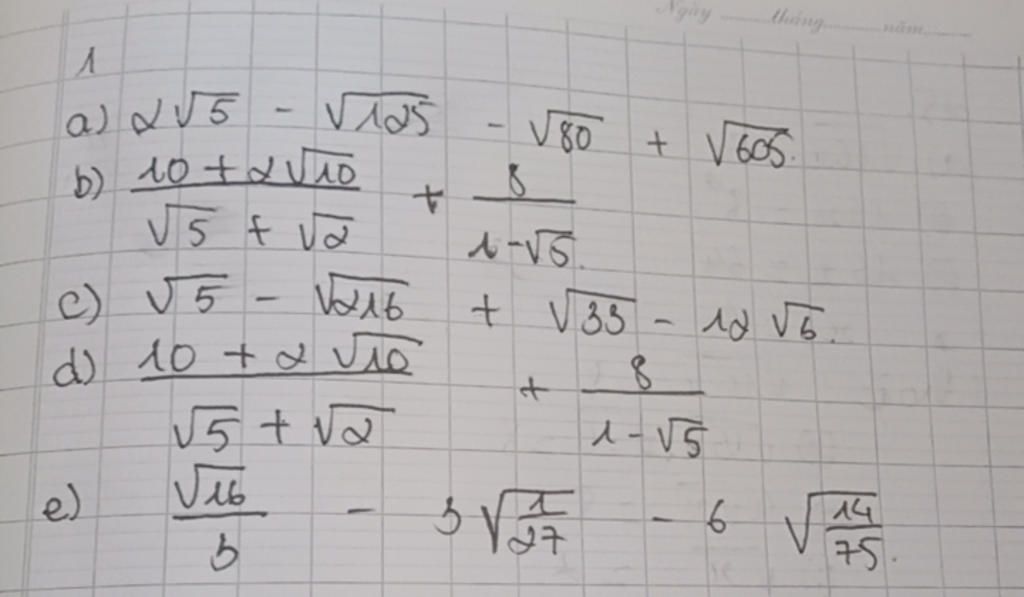 Ngày ........ tháng ........ năm ........
1
a) 2√5 - √125 - √80 + √605.
b) (10 + 2√10)/(√5 + √2) + 8/(1-√5).
c) √5 - √216 + √33 - 12√6.
d) (10 + 2√10)/(√5 + √2) + 8/(1-√5)
e) √16/3 - 3√(1/27) - 6√(14/75).